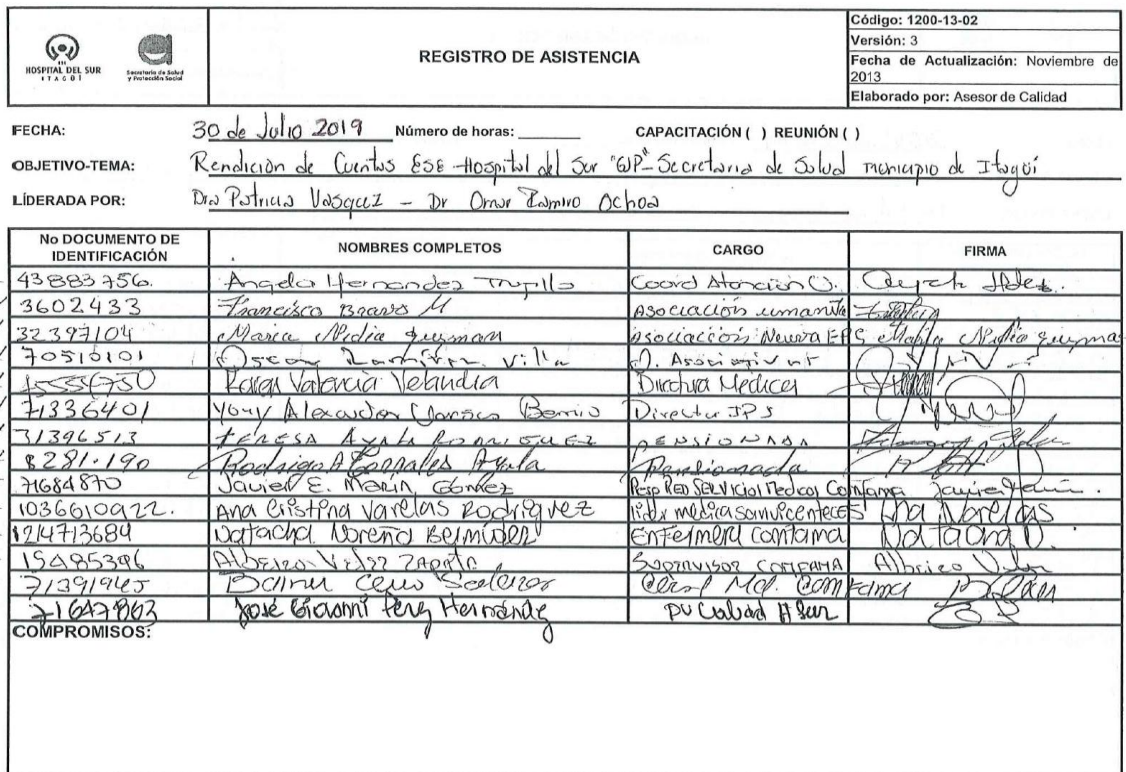 HOSPITAL DEL SUR
ITAGÜÍ
Secretaría de Salud
y Protección Social
REGISTRO DE ASISTENCIA
Código: 1200-13-02
Versión: 3
Fecha de Actualización: Noviembre de
2013
Elaborado por: Asesor de Calidad
FECHA: 30 de Julio 2019 Número de horas: CAPACITACIÓN ( ) REUNIÓN ( )
OBJETIVO-TEMA: Rendición de Cuentas ESE Hospital del Sur "GJP" - Secretaria de Salud municipio de Itagüí
LÍDERADA POR: Dra Patricia Vasquez - Dr Omar Ramiro Ochoa
No DOCUMENTO DE IDENTIFICACIÓN NOMBRES COMPLETOS CARGO FIRMA
43883756. Angela Hernandez Trujillo Coord Atención
3602433 Francisco Bravo M Asociación
32397104 Maria Nidia guzman Asociacion Nueva EPS Maria Nidia guzman
70510101 Oscar Ramirez Villa
Valencia Velandia Directora Medica
71336401 Alexander Berrio Director IPS
31396513 TERESA AYALA RODRIGUEZ PENSIONADA
8281.190 Rodrigo A Corrales Ayala Pensionada
71684870 Javier E. Marín Gómez Resp RED SERVICIOS Medicos Comfama Javier Marín.
1036610922. Ana Cristina Varelas Rodriguez medica sanvicenteces Ana Varelas
1214713684 Natacha Noreña Bermúdez Enfermera comfama Natacha N.
15485396 Alberico Velez Zapata SUPERVISOR COMFAMA Alberico Velez
71391945 Comfama
71647863 José Giovanni Perez Hernández PU Calidad H Sur
COMPROMISOS: